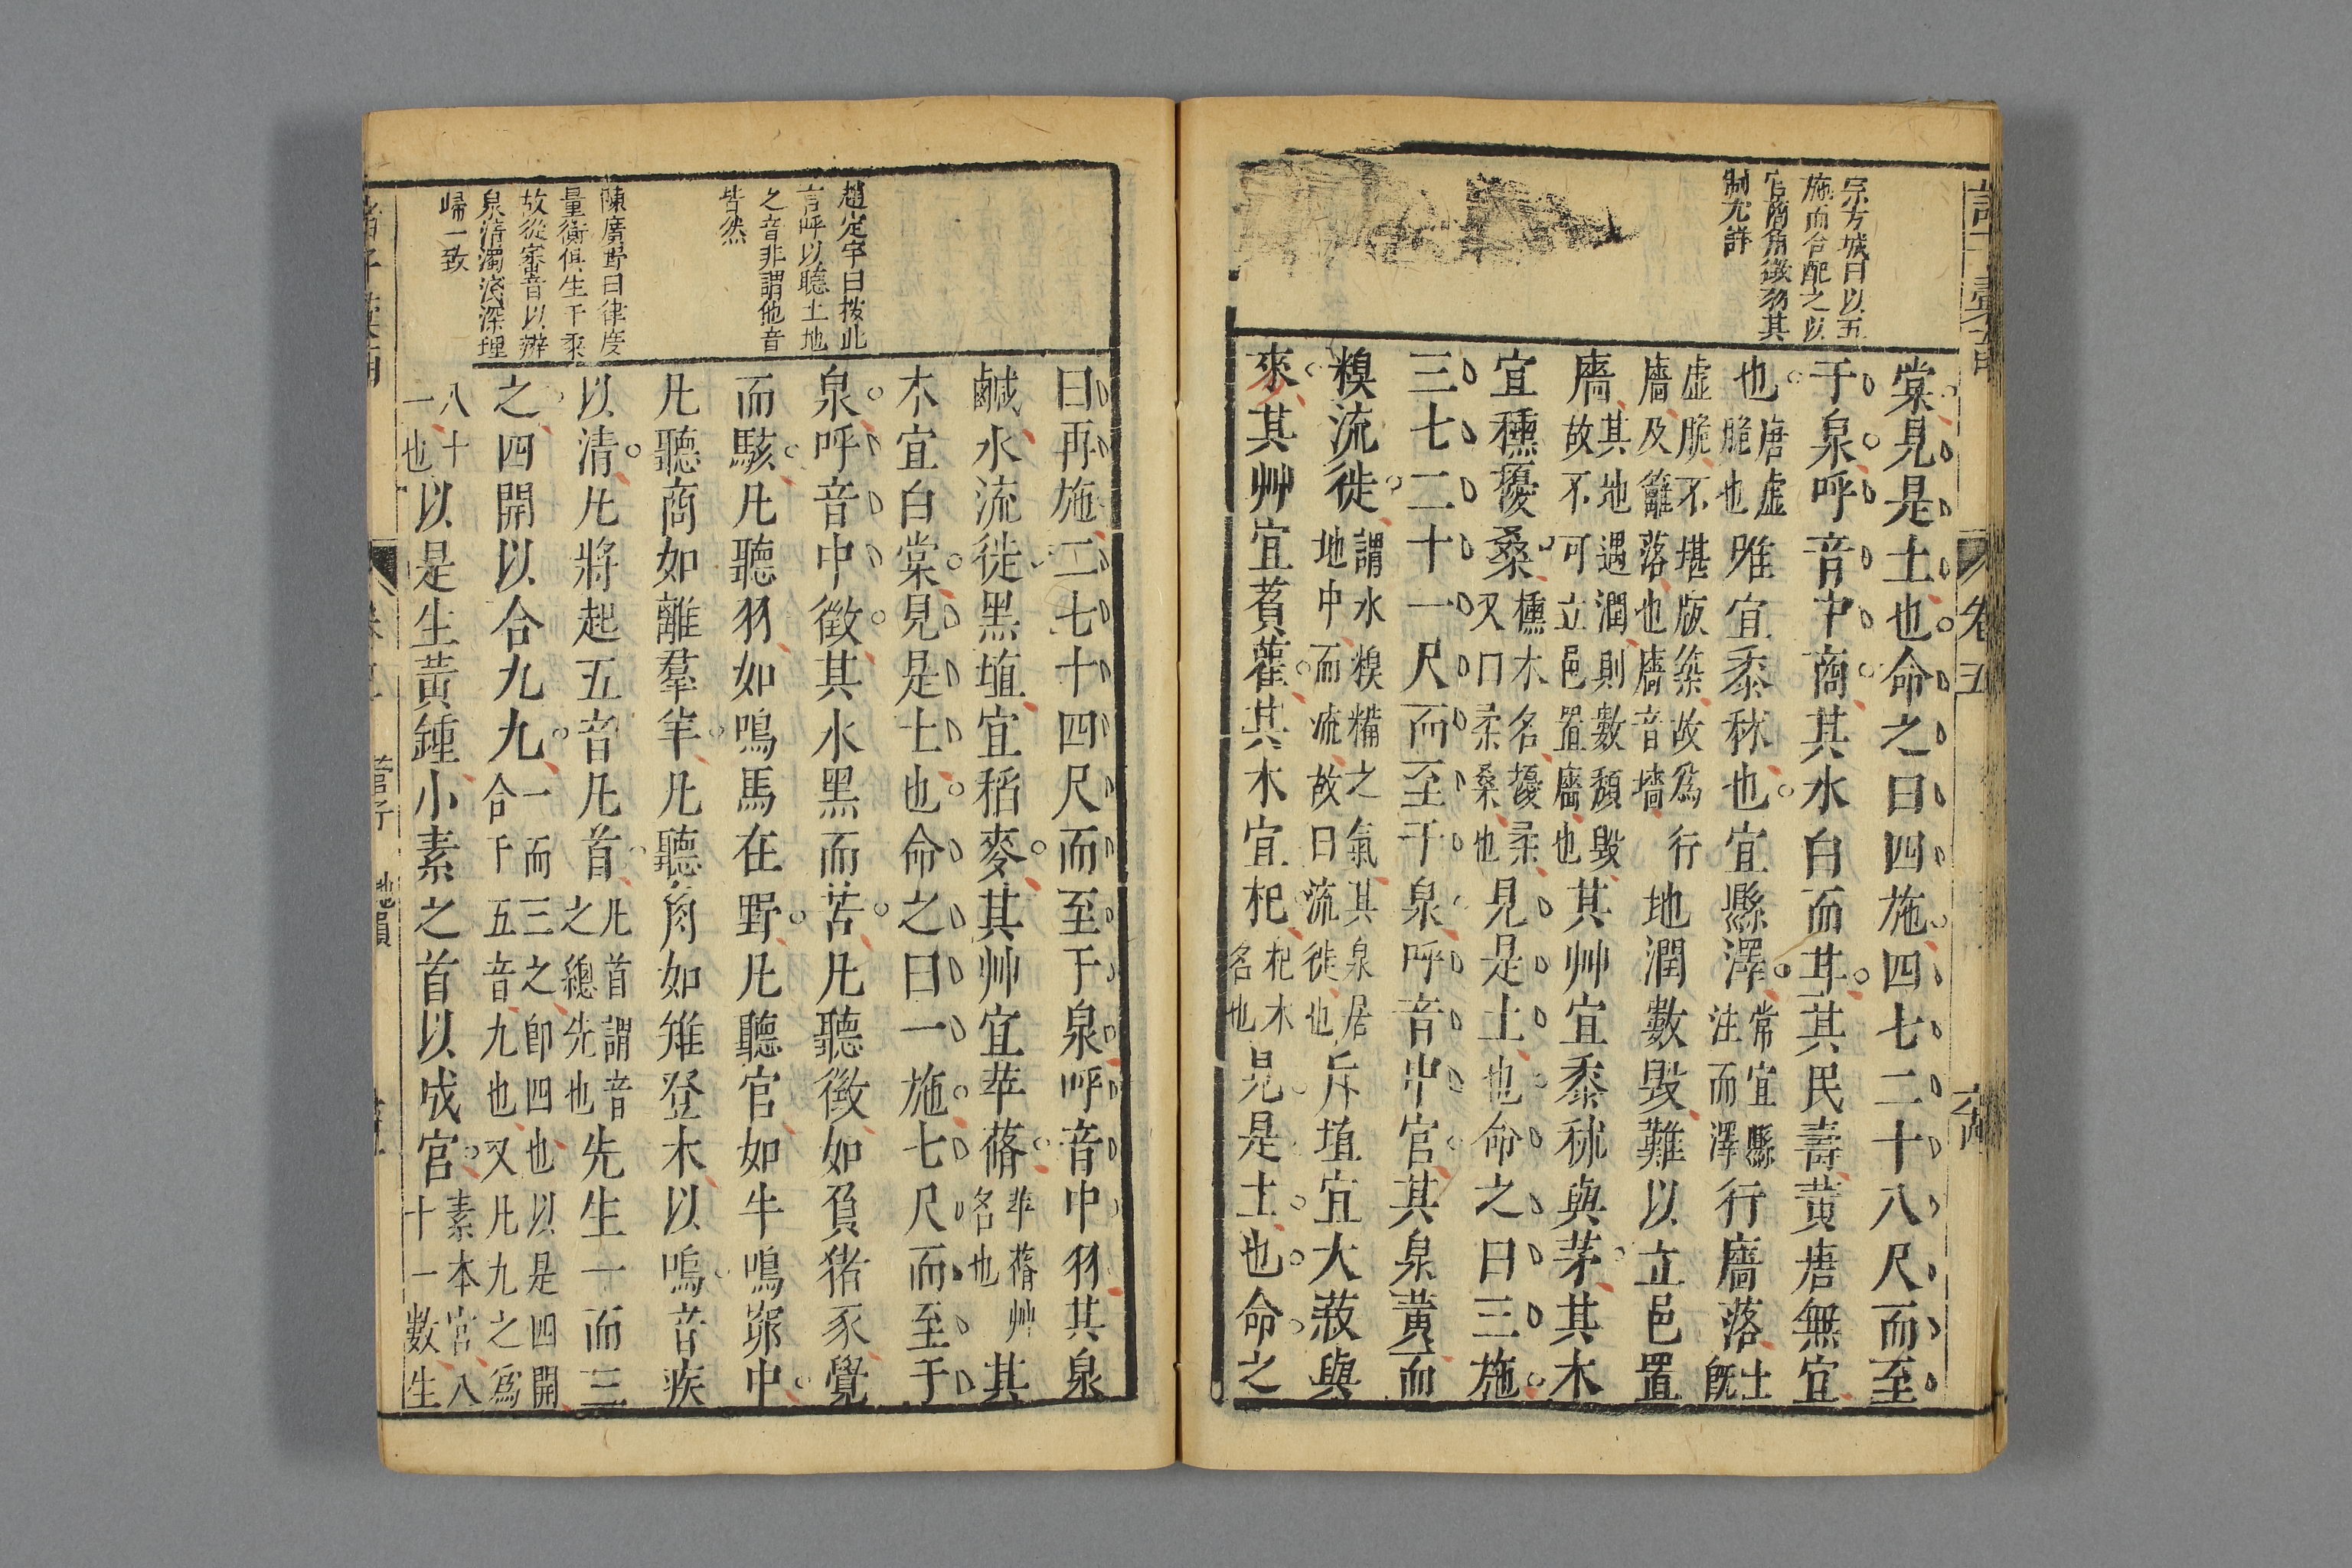 宗方城曰以五
施而合配之以
官商角徵羽其
制尤詳
棠見是土也命之曰四施四七二十八尺而至
于泉呼音中商其水白而甘其民壽黃唐無宜
也唐虛脆也唯宜黍秫也宜縣澤常宜縣注而澤行廧落土既
虛脆不堪版築故為行廧及籬落也廧音墻地潤數毀難以立邑置
廧其地遇潤則數頹毀故不可立邑置廧也其艸宜黍秫與茅其木
宜櫄擾桑櫄木名擾柔又曰柔桑也見是土也命之曰三施
三七二十一尺而至于泉呼音中官其泉黃而
糗流徙謂水糗糒之氣其泉居地中而流故曰流徙也斥埴宜大菽與
來其艸宜萯雚其木宜杞杞木名也見是土也命之
卷五
趙定宇曰按此
言呼以聽土地
之音非謂他音
皆然
陳廣野曰律度
量衡俱生于乘
故從審音以辨
泉清濁淺深理
歸一致
曰再施二七十四尺而至于泉呼音中羽其泉
鹹水流徙黑埴宜稻麥其艸宜苹蓨苹蓨艸名也其
木宜白棠見是土也命之曰一施七尺而至于
泉呼音中徵其水黑而苦凡聽徵如負猪豕覺
而駭凡聽羽如鳴馬在野凡聽官如牛鳴窌中
凡聽商如離羣羊凡聽角如雉登木以鳴音疾
以清凡將起五音凡首凡首謂音之總先也先生一而三
之四開以合九九一而三之即四也以是四開合于五音九也又凡九之為
八十一也以是生黃鍾小素之首以成官素本官八十一數生
管子
地員